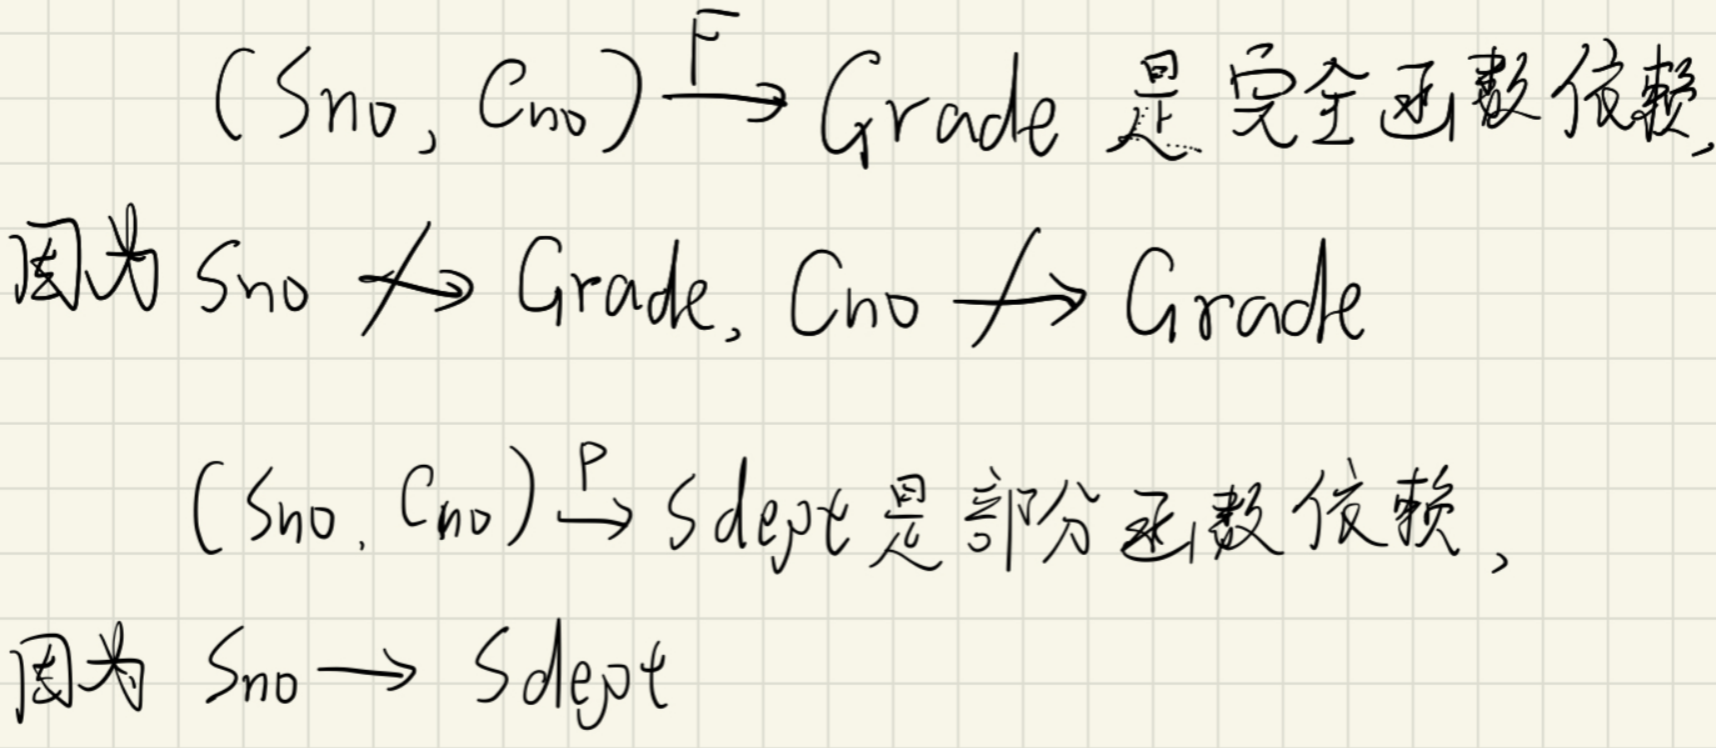 (Sno, Cno) F→ Grade 是完全函数依赖,
因为 Sno ↛ Grade, Cno ↛ Grade
(Sno, Cno) P→ Sdept 是部分函数依赖,
因为 Sno → Sdept